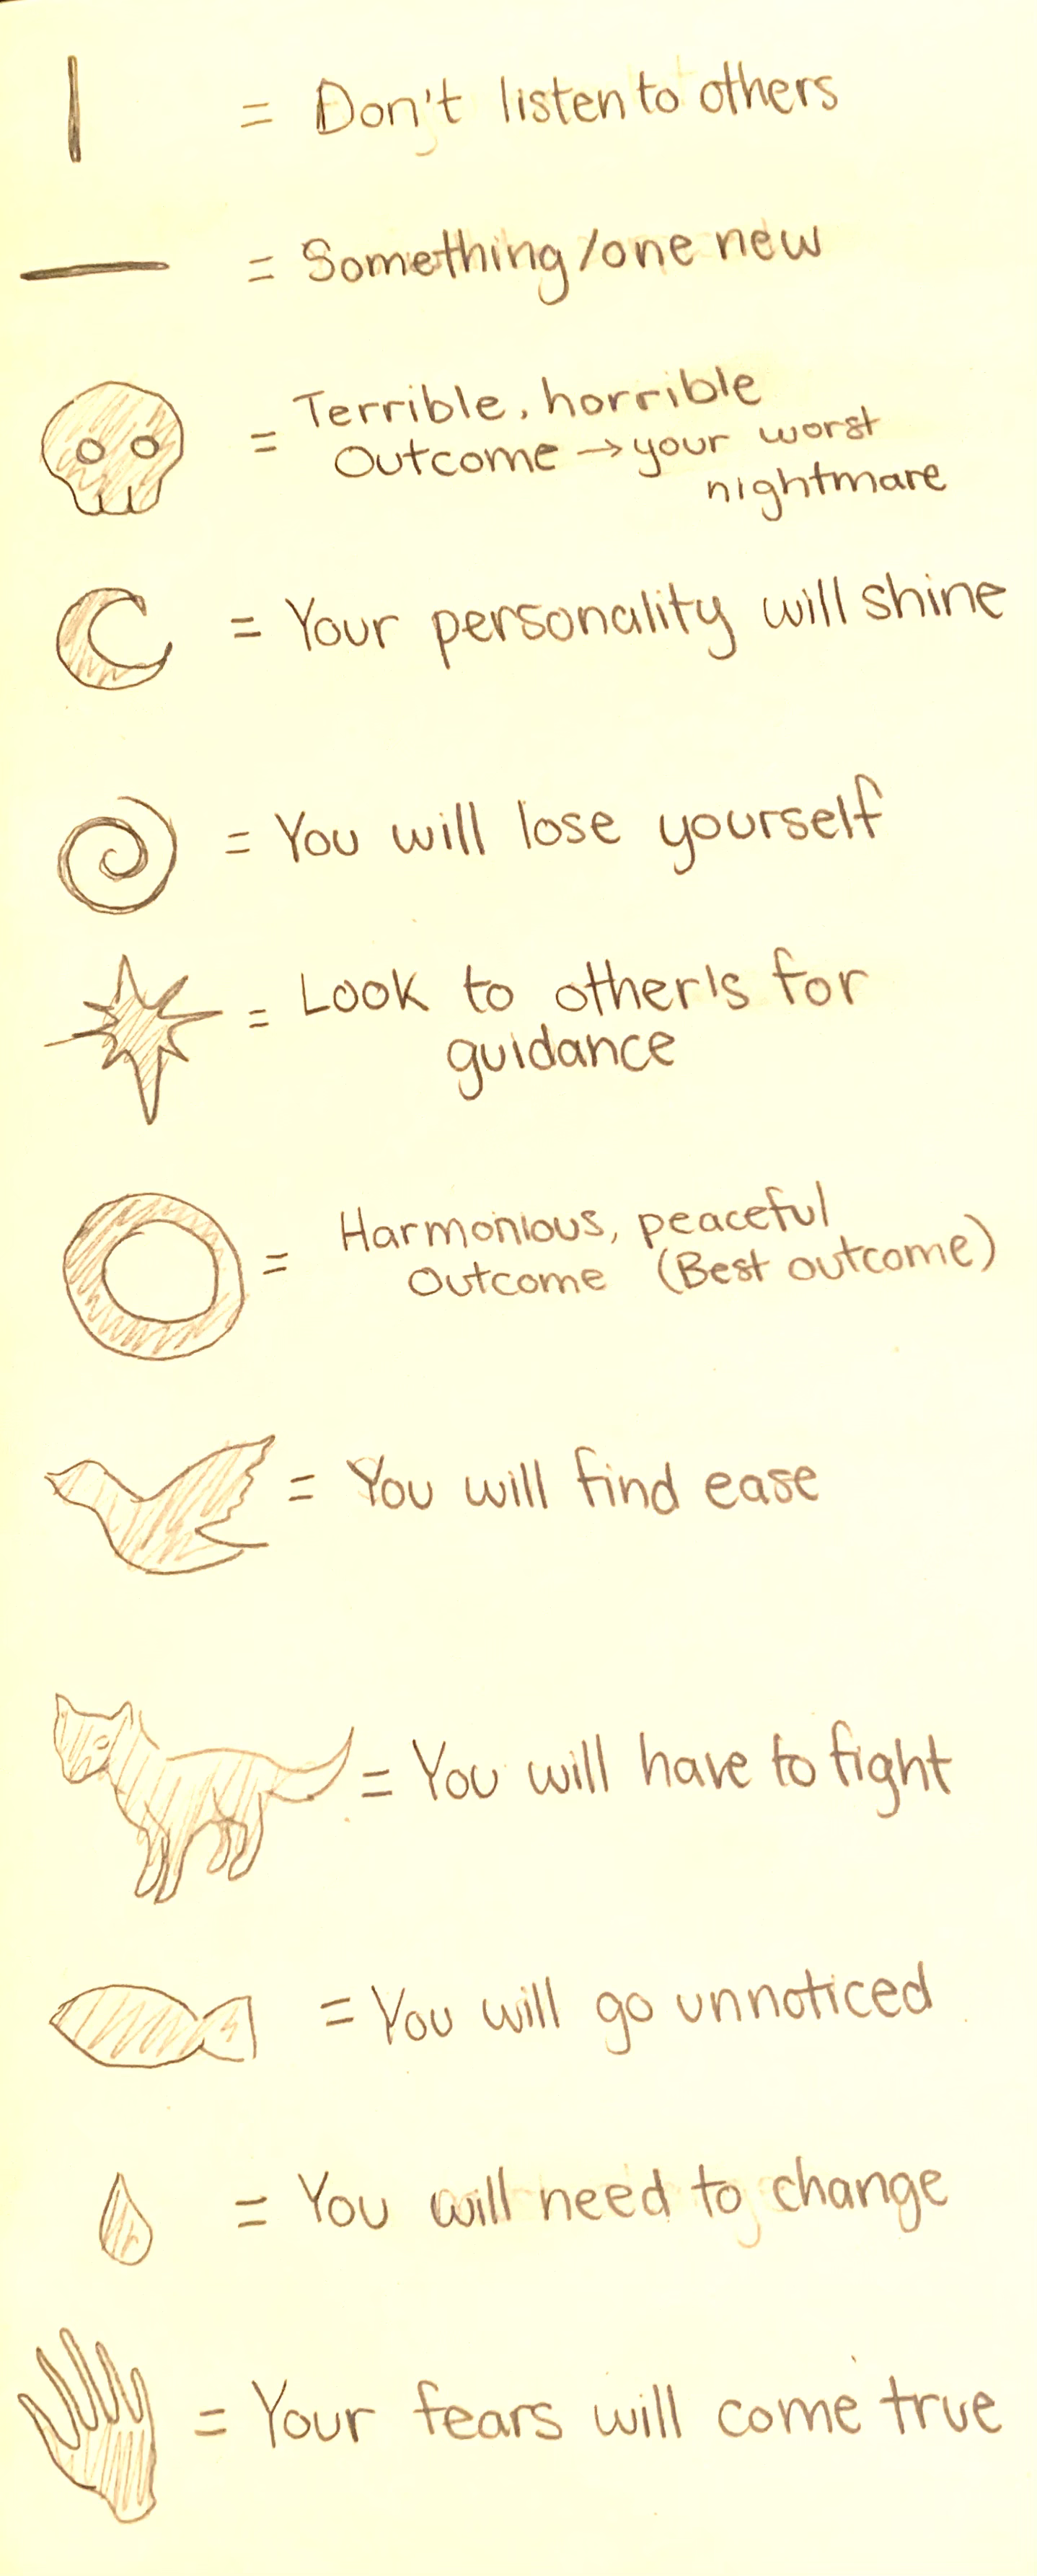 = Don't listen to others
= Something/one new
= Terrible, horrible
Outcome → your worst
nightmare
= Your personality will shine
= You will lose yourself
= Look to other's for
guidance
= Harmonious, peaceful
Outcome (Best outcome)
= You will find ease
= You will have to fight
= You will go unnoticed
= You will need to change
= Your fears will come true